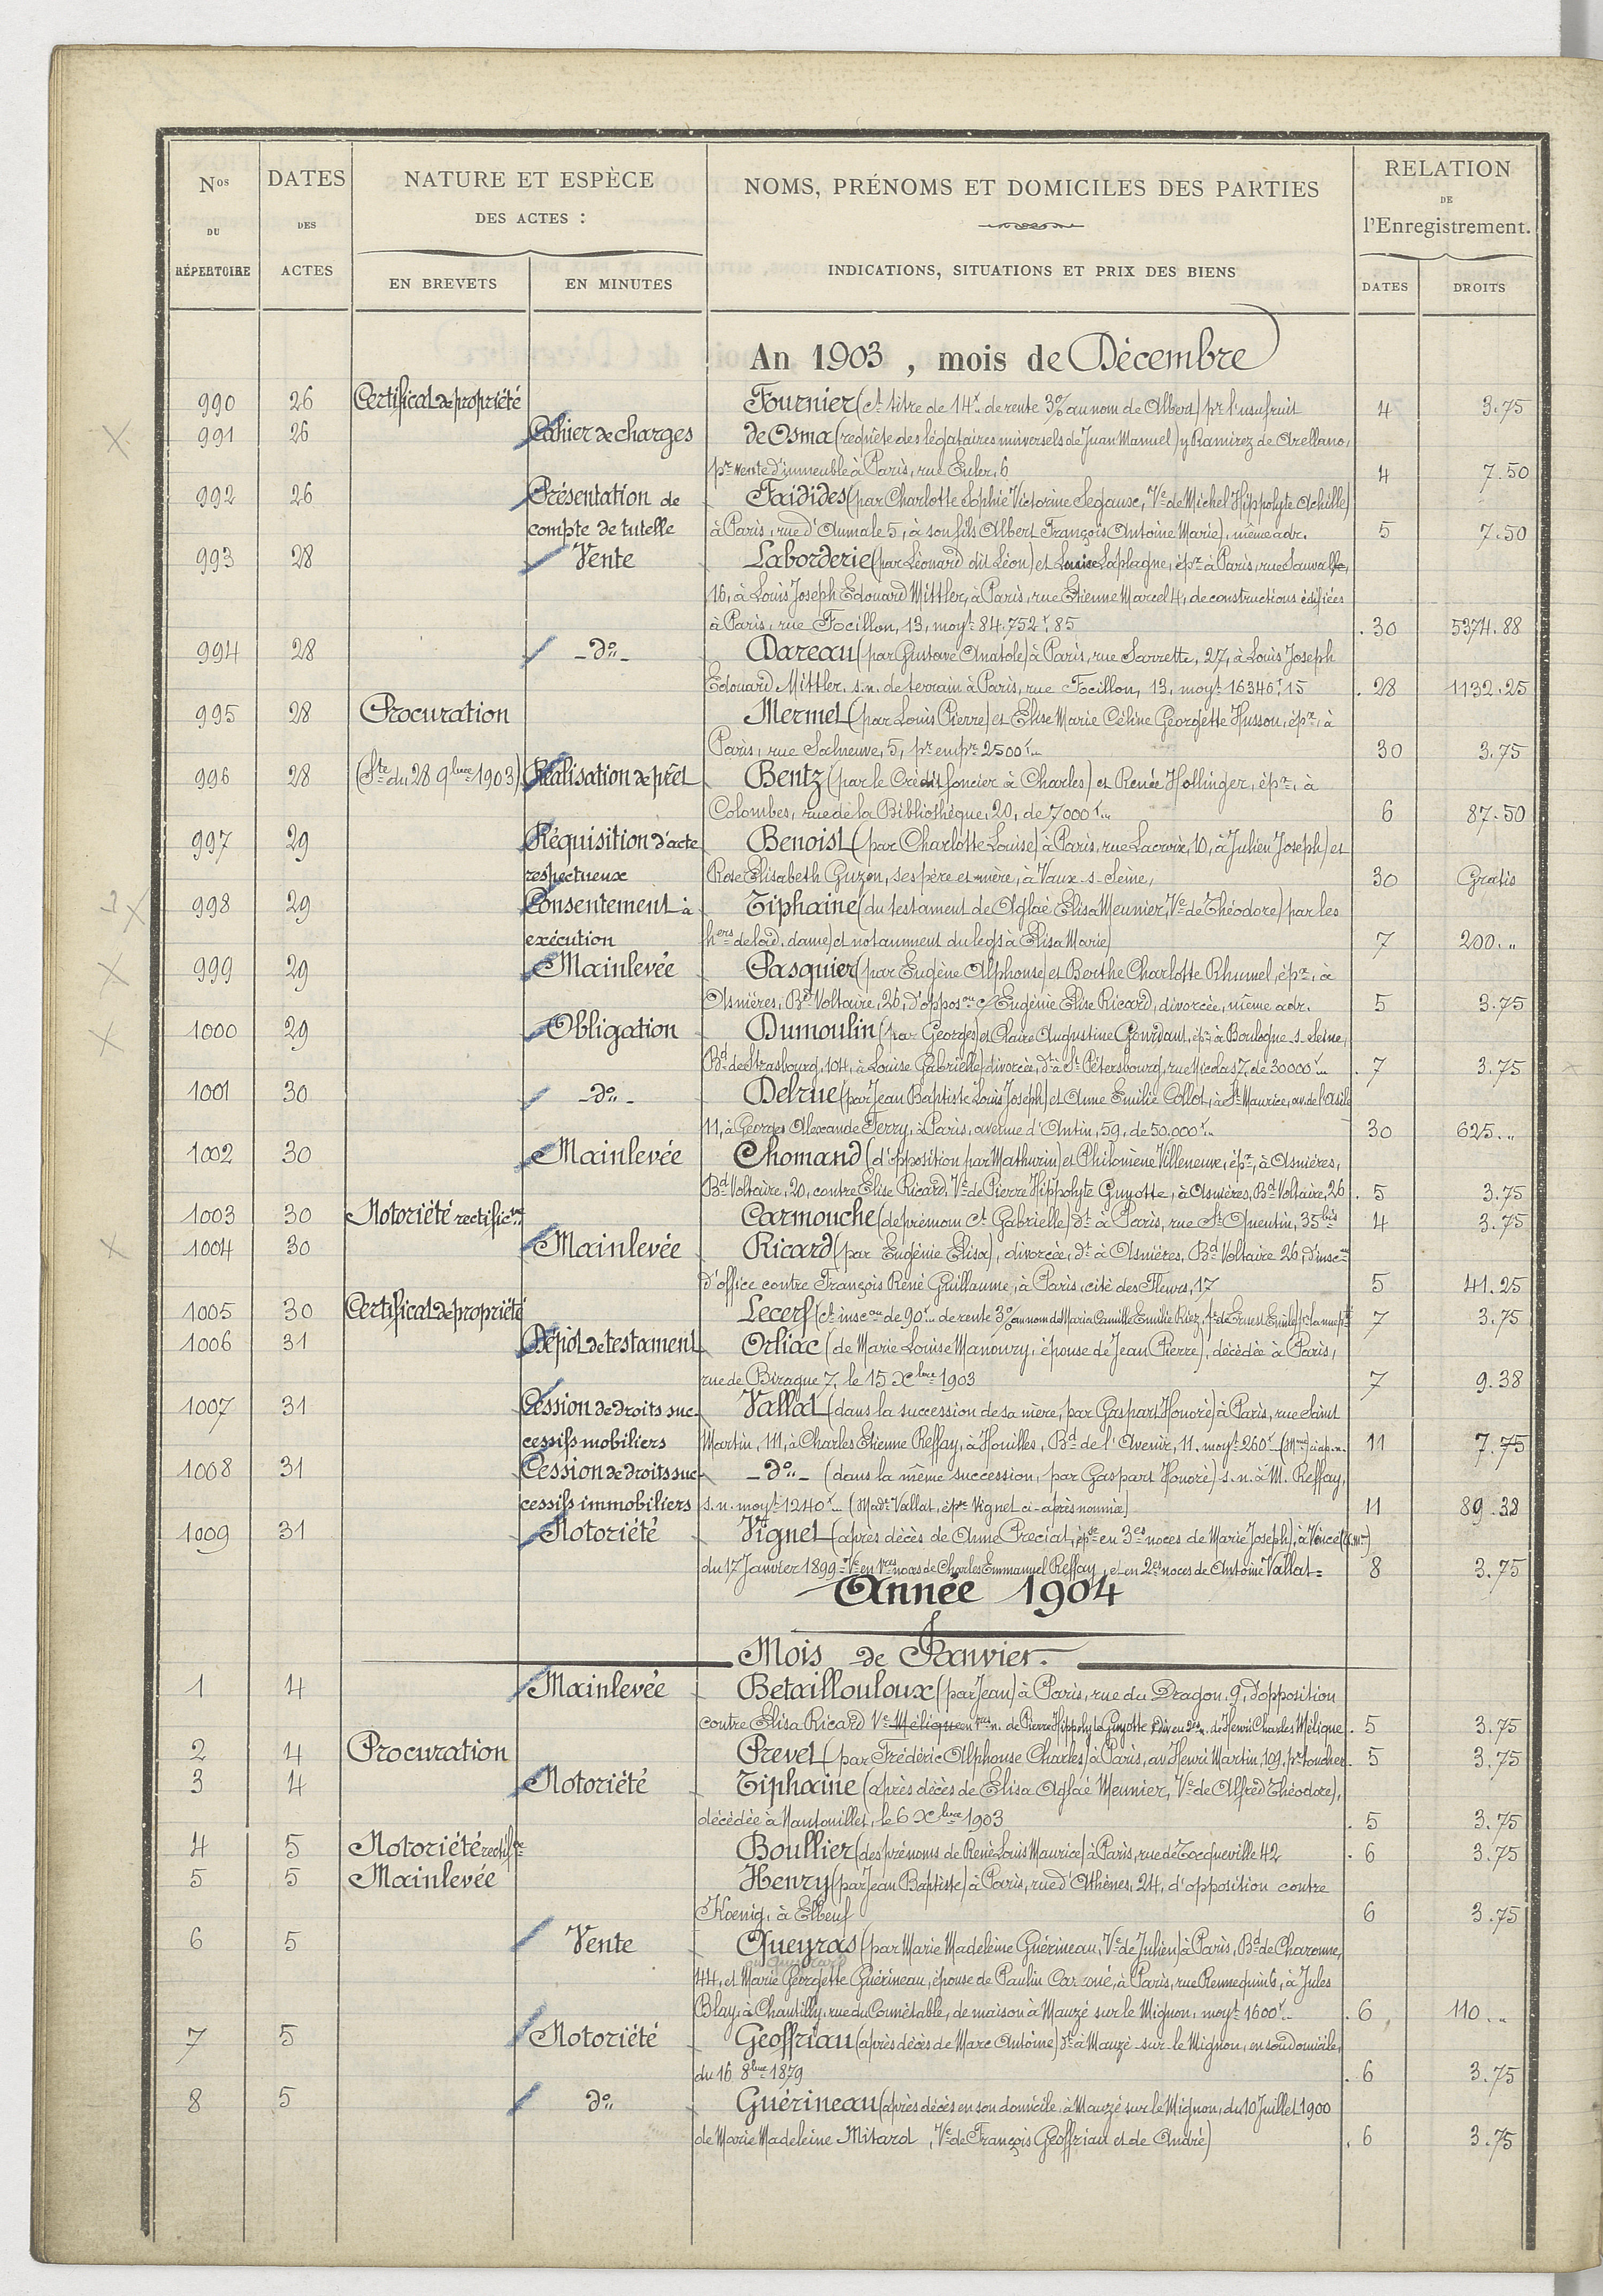 Nos DU RÉPERTOIRE
DATES DES ACTES
NATURE ET ESPÈCE DES ACTES :
EN BREVETS
EN MINUTES
NOMS, PRÉNOMS ET DOMICILES DES PARTIES
INDICATIONS, SITUATIONS ET PRIX DES BIENS
RELATION DE l'Enregistrement.
DATES
DROITS
An 1903, mois de Décembre
990 26 Certificat de propriété Fournier (ct titre de 14f.. de rente 3% au nom de Albert) pr l'usufruit 4 3.75
991 26 Cahier de charges de Osma (requête des légataires universels de Juan Manuel) y Ramirez de Arellano,
pr vente d'immeuble à Paris, rue Euler, 6 4 7.50
992 26 Présentation de Faididès (par Charlotte Sophie Victorine Segaux, Ve de Michel Hippolyte Achille)
compte de tutelle à Paris, rue d'Aumale 5, à son fils Albert François Antoine Marie), même adr. 5 7.50
993 28 Vente Laborderie (par Léonard dit Léon) et Louise Laplagne, épx à Paris, rue Sauvall
16, à Louis Joseph Edouard Mittler, à Paris, rue Etienne Marcel 4, de constructions édifiées
à Paris, rue Focillon, 13, moyt 84.752f.85 30 5374.88
994 28 -do- Dareau (par Gustave Anatole) à Paris, rue Sarrette, 27, à Louis Joseph
Edouard Mittler, s.n. de terrain à Paris, rue Focillon, 13, moyt 16346f.15 28 1132.25
995 28 Procuration Mermet (par Louis Pierre) et Elise Marie Céline Georgette Husson, épx, à
Paris, rue Salneuve, 5, pr empr 2500f.. 30 3.75
996 28 (Ste du 28 9bre 1903) Réalisation de prêt Bentz (par le Crédit foncier à Charles) et Renée Hollinger, épx, à
Colombes, rue de la Bibliothèque, 20, de 7000f.. 6 87.50
997 29 Réquisition d'acte Benoist (par Charlotte Louise) à Paris, rue Lacroix, 10, à Julien Joseph) et
respectueux Rose Elisabeth Guzon, ses père et mère, à Vaux-s-Seine, 30 Gratis
998 29 Consentement à Tiphaine (du testament de Aglaé Elisa Meunier, Ve de Théodore) par les
exécution hers de lad. dame) et notamment du legs à Elisa Marie) 7 200 "
999 29 Mainlevée Pasquier (par Eugène Alphonse) et Berthe Charlotte Rhumel, épx, à
Asnières, Bd Voltaire, 26, d'oppos on c/ Eugénie Elise Ricard, divorcée, même adr. 5 3.75
1000 29 Obligation Dumoulin (par Georges) et Claire Augustine Gourdant, épx à Boulogne s. Seine,
Bd de Strasbourg, 104, à Louise Gabrielle) divorcée, dt à St Pétersbourg, rue Nicolas 7, de 30000f.. 7 3.75
1001 30 -do- Delrue (par Jean Baptiste Louis Joseph) et Anne Emilie Collot, à St Maurice, av. de l'asile
11, à Georges Alexandre Ferry, à Paris, avenue d'Antin, 59, de 50.000f.. 30 625 "
1002 30 Mainlevée Chomand (d'opposition par Mathurin) et Philomène Villeneuve, épx, à Asnières,
Bd Voltaire, 20, contre Elise Ricard, Ve de Pierre Hippolyte Guyotte, à Asnières, Bd Voltaire, 26 5 3.75
1003 30 Notoriété rectific ve Carmouche (de prénom ct Gabrielle) dt à Paris, rue St Quentin, 35 bis 4 3.75
1004 30 Mainlevée Ricard (par Eugénie Elisa), divorcée, dt à Asnières, Bd Voltaire 26, d'insc on
d'office contre François René Guillaume, à Paris, cité des Fleurs, 17 5 41.25
1005 30 Certificat de propriété Lecerf (ct insc on de 90f.. de rente 3% au nom de Maria Camille Emilie Riez, fe de Ernest Emile) pr la nue pté 7 3.75
1006 31 Dépôt de testament Orliac (de Marie Louise Manoury, épouse de Jean Pierre), décédée à Paris,
rue de Birague 7, le 15 Xbre 1903 7 9.38
1007 31 Cession de droits suc- Vallat (dans la succession de sa mère, par Gaspart Honoré) à Paris, rue Saint
cessifs mobiliers Martin, 111, à Charles Etienne Reffay, à Houilles, Bd de l'Avenir, 11, moyt 260f.. (Mme) ci ap. n. 11 7.75
1008 31 Cession de droits suc- -do- (dans la même succession, par Gaspart Honoré) s.n. à M. Reffay,
cessifs immobiliers s.n. moyt 1240f.. (Made Vallat, épse Vignet ci-après nommée) 11 89.38
1009 31 Notoriété Vignet (après décès de Anne Preciat, épse en 3es noces de Marie Joseph), à
du 17 Janvier 1899 - Ve en 1res noces de Charles Emmanuel Reffay, et en 2es noces de Antoine Vallat = 8 3.75
Année 1904
Mois de Janvier.
1 4 Mainlevée Betaillouloux (par Jean) à Paris, rue du Dragon, 9, d'opposition
contre Elisa Ricard Ve Mélique en 1res n. de Pierre Hippolyte Guyotte & div en 2es n. de Henri Charles Mélique 5 3.75
2 4 Procuration Prevet (par Frédéric Alphonse Charles) à Paris, av. Henri Martin, 109, pr toucher 5 3.75
3 4 Notoriété Tiphaine (après décès de Elisa Aglaé Meunier, Ve de Alfred Théodore),
décédée à Nantouillet, le 6 Xbre 1903 5 3.75
4 5 Notoriété rectif ve Boullier (des prénoms de René Louis Maurice) à Paris, rue de Tocqueville 42 6 3.75
5 5 Mainlevée Henry (par Jean Baptiste) à Paris, rue d'Athènes, 24, d'opposition contre
Koenig, à Elbeuf 6 3.75
6 5 Vente Queyras (par Marie Madeleine Guérineau, Ve de Julien) à Paris, Bd de Charonne,
44, et Marie Georgette Guérineau, épouse de Paulin à Paris, rue Rennequin 6, à Jules
Blay, à Chantilly, rue du Connétable, de maison à Mauzé sur le Mignon, moyt 1600f.. 6 110 "
7 5 Notoriété Geoffriau (après décès de Marc Antoine) dt à Mauzé-sur-le Mignon, en son domicile,
du 16 8bre 1879 6 3.75
8 5 do Guérineau (après décès en son domicile, à Mauzé sur le Mignon, du 10 Juillet 1900
de Marie Madeleine Mitard, Ve de François Geoffriau et de André) 6 3.75